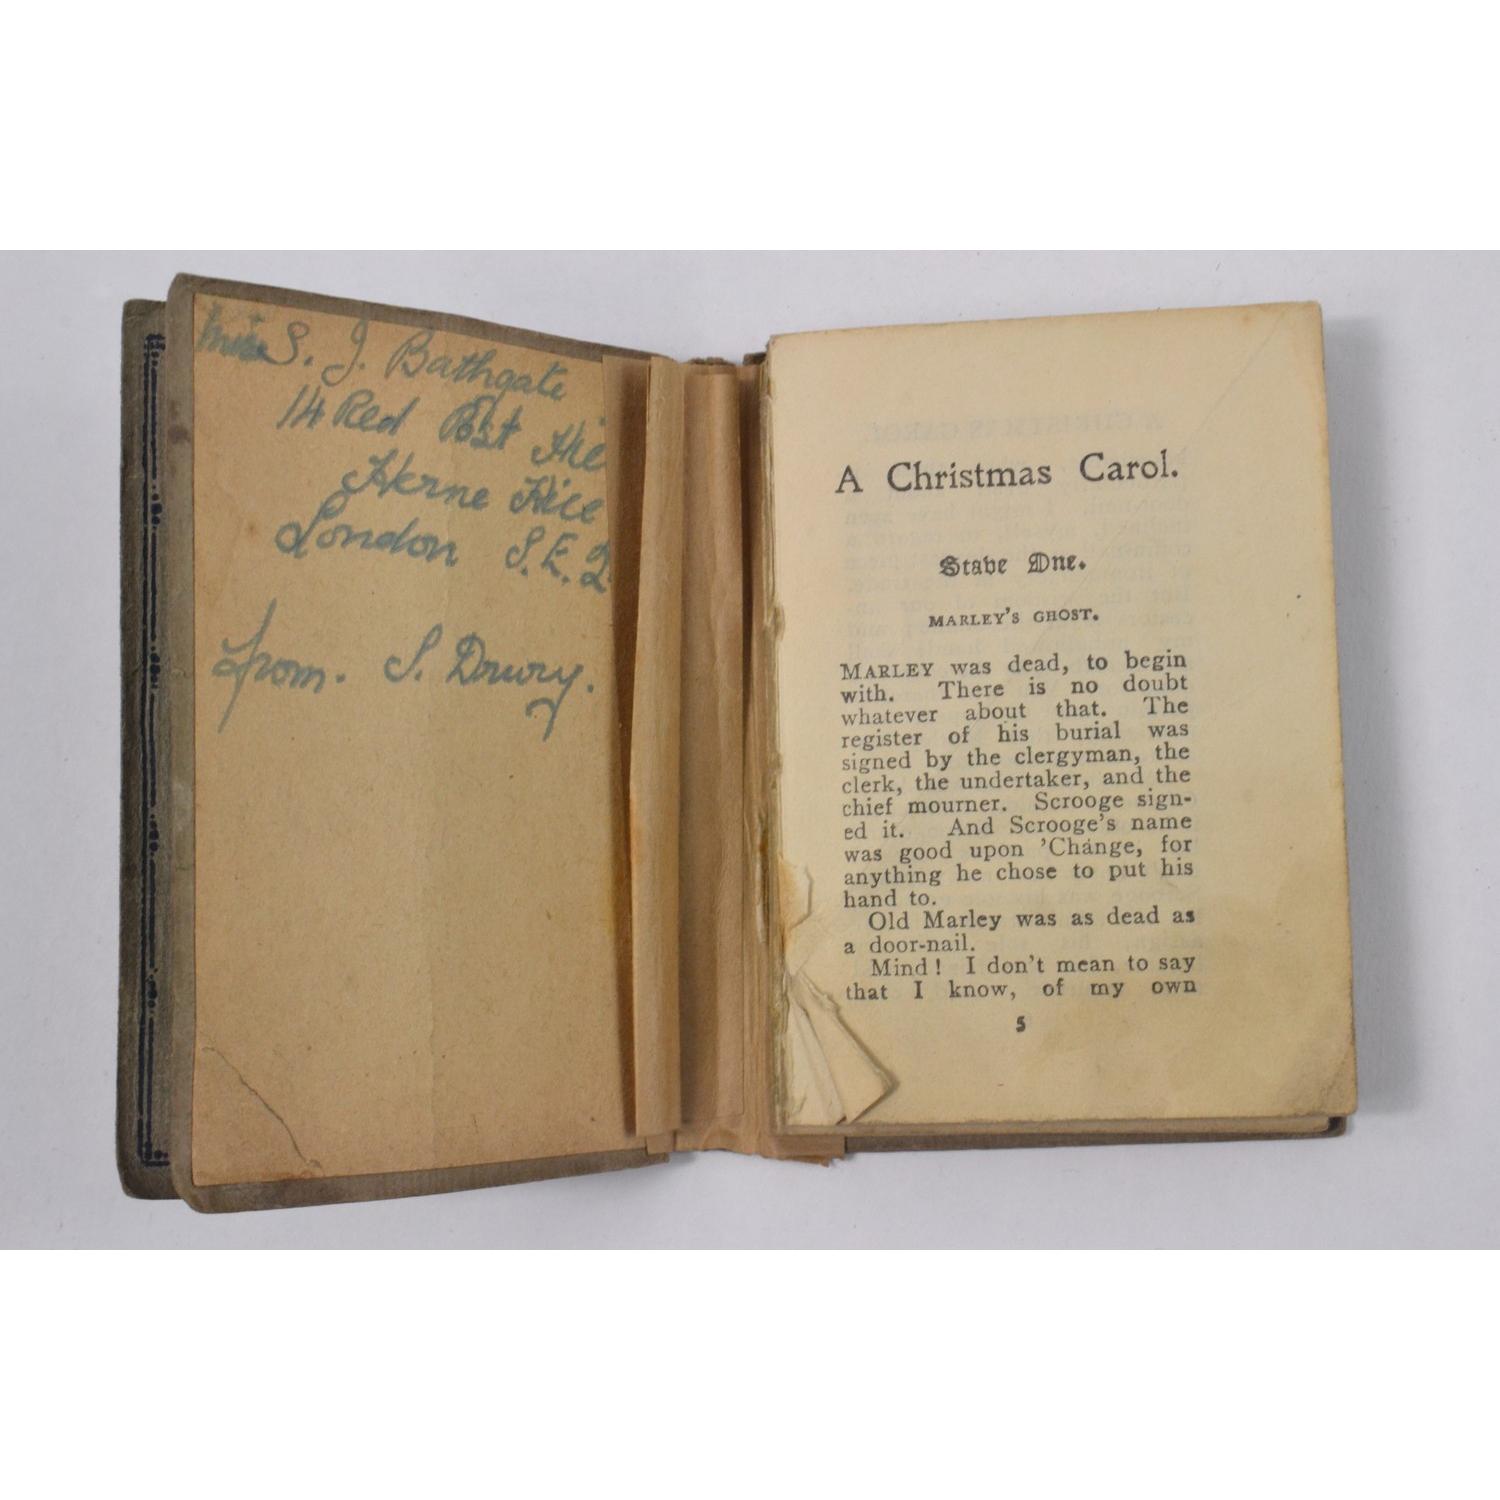 Miss S. J. Bathgate
14 Red Post Hil
Herne Hill
London S.E.2
from. S. Drury.
A Christmas Carol.
Stave One.
MARLEY'S GHOST.
MARLEY was dead, to begin
with. There is no doubt
whatever about that. The
register of his burial was
signed by the clergyman, the
clerk, the undertaker, and the
chief mourner. Scrooge sign-
ed it. And Scrooge's name
was good upon 'Change, for
anything he chose to put his
hand to.
Old Marley was as dead as
a door-nail.
Mind! I don't mean to say
that I know, of my own
5